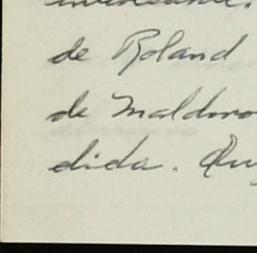 de Roland
de Maldoro
dida. Qu